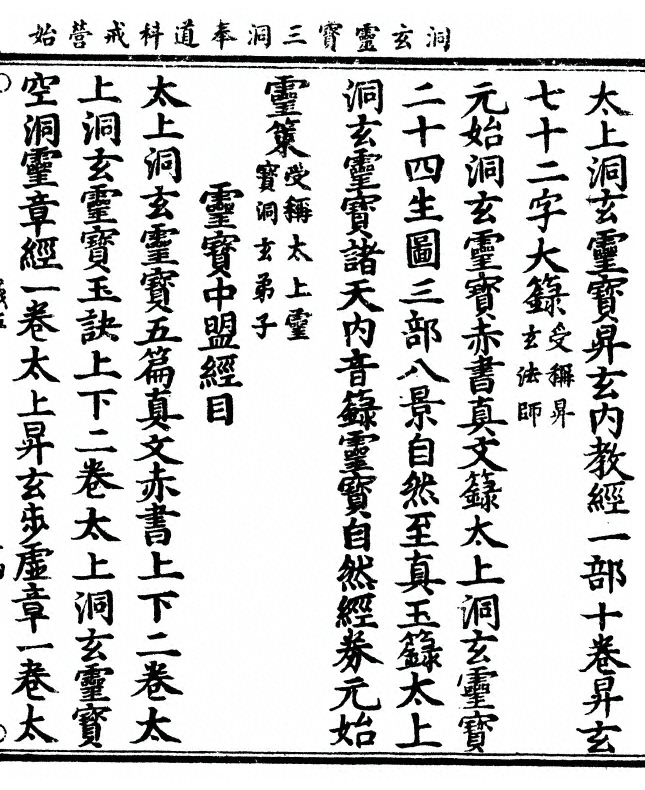 洞玄靈寶三洞奉道科戒營始
太上洞玄靈寶昇玄内教經一部十卷昇玄
七十二字大籙受稱昇玄法師
元始洞玄靈寶赤書真文籙太上洞玄靈寶
二十四生圖三部八景自然至真玉籙太上
洞玄靈寶諸天内音籙靈寶自然經券元始
靈策受稱太上靈寶洞玄弟子
靈寶中盟經目
太上洞玄靈寶五篇真文赤書上下二卷太
上洞玄靈寶玉訣上下二卷太上洞玄靈寶
空洞靈章經一卷太上昇玄步虛章一卷太